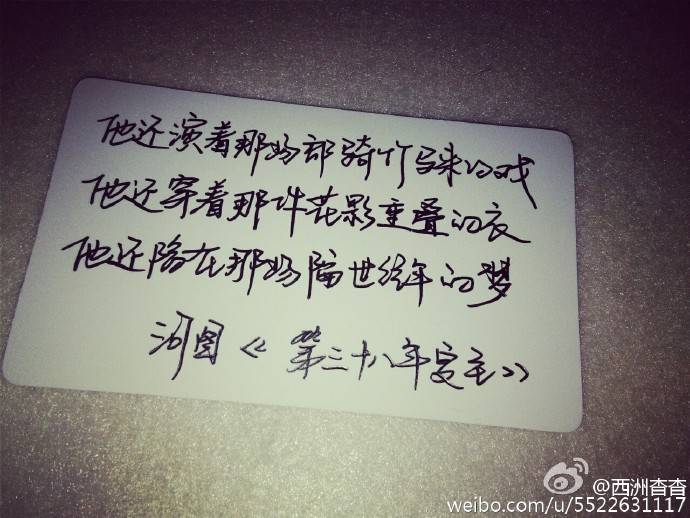 他还演着那场部骑竹马来的戏
他还穿着那件花影重叠的衣
他还陷在那场隔世经年的梦
河图《第三十八年夏至》
@西洲杳杳
weibo.com/u/5522631117